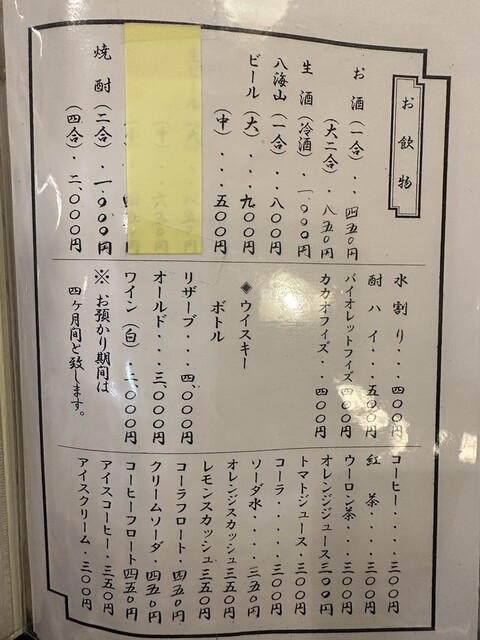 お飲物
お酒（一合）・・四五〇円
（大二合）・八五〇円
生酒（冷酒）・一、〇〇〇円
八海山（一合）・・・八〇〇円
ビール（大）・・・九〇〇円
（中）・・・五〇〇円
焼酎（二合）・一、〇〇〇円
（四合）・二、〇〇〇円
水割り・・・四〇〇円
酎ハイ・・・・五〇〇円
バイオレットフィズ四〇〇円
カカオフィズ・・四〇〇円
◈ウイスキー
ボトル
リザーブ・・・四、〇〇〇円
オールド・・・三、〇〇〇円
ワイン（白）・二、〇〇〇円
※お預かり期間は
四ヶ月間と致します。
コーヒー・・・・・三〇〇円
紅茶・・・・三〇〇円
ウーロン茶・・・三〇〇円
オレンジジュース三〇〇円
トマトジュース・三〇〇円
コーラ・・・・・三〇〇円
ソーダ水・・・・三五〇円
オレンジスカッシュ三五〇円
レモンスカッシュ三五〇円
コーラフロート・四五〇円
クリームソーダ・四五〇円
コーヒーフロート四五〇円
アイスコーヒー・三五〇円
アイスクリーム・三〇〇円